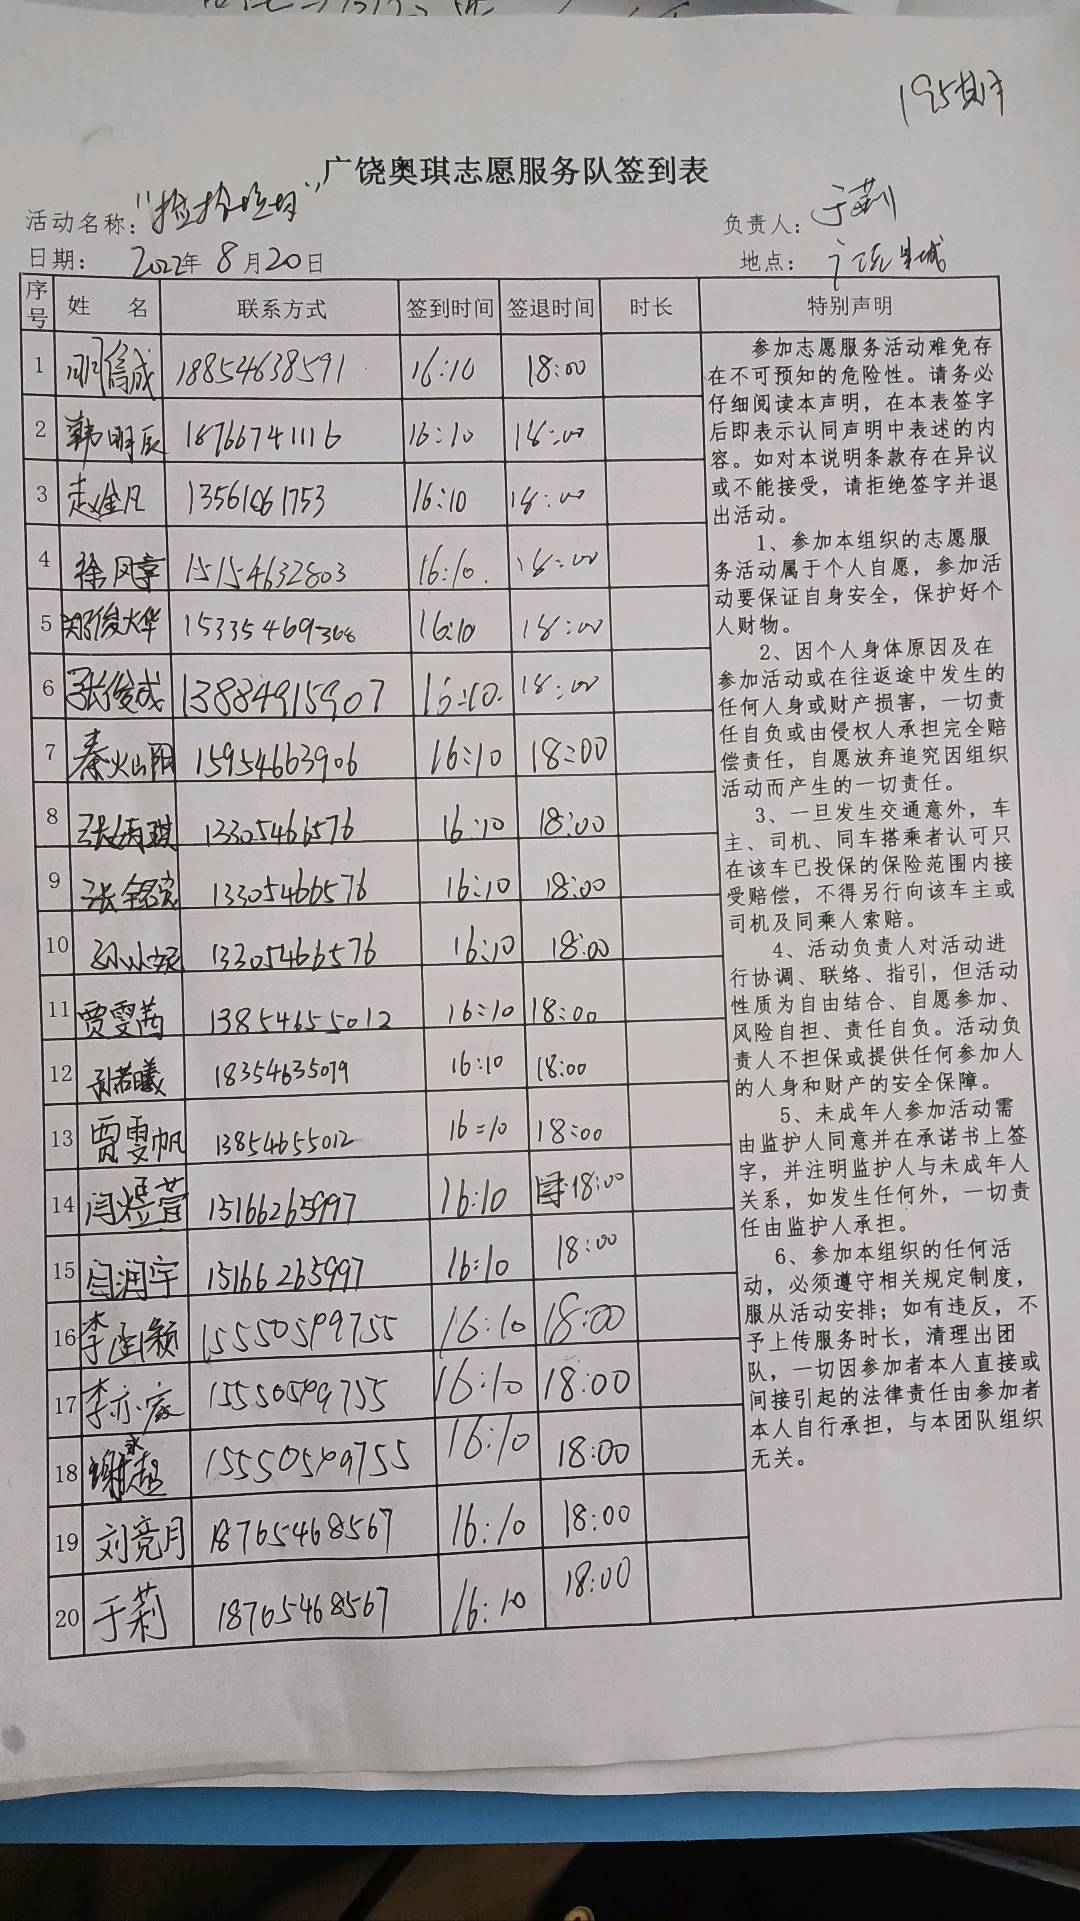 195期
广饶奥琪志愿服务队签到表
活动名称：“捡拾垃圾”
负责人：于莉
日期：2022年8月20日
地点：广饶县城
序号 姓 名 联系方式 签到时间 签退时间 时长 特别声明
1 信成 18854638591 16:10 18:00
2 韩明辰 18766741116 16:10 18:00
3 赵 凡 13561061753 16:10 18:00
4 徐风享 15154632803 16:10. 18:00
5 郑俊烨 15335469368 16:10 18:00
6 张俊成 13884915907 16:10. 18:00
7 秦灿阳 15954663906 16:10 18:00
8 张 琪 13305466576 16:10 18:00
9 张 13305466576 16:10 18:00
10 孙 13305466576 16:10 18:00
11 贾雯茜 13854655012 16:10 18:00
12 孙若曦 18354635079 16:10 18:00
13 贾雯帆 13854655012 16:10 18:00
14 闫煜萱 15166265997 16:10 18:00
15 闫润宇 15166265997 16:10 18:00
16 李 颖 15550599755 16:10 18:00
17 李亦宸 15550599755 16:10 18:00
18 谢永超 15550599755 16:10 18:00
19 刘竞月 18765468567 16:10 18:00
20 于莉 18765468567 16:10 18:00
参加志愿服务活动难免存
在不可预知的危险性。请务必
仔细阅读本声明，在本表签字
后即表示认同声明中表述的内
容。如对本说明条款存在异议
或不能接受，请拒绝签字并退
出活动。
1、参加本组织的志愿服
务活动属于个人自愿，参加活
动要保证自身安全，保护好个
人财物。
2、因个人身体原因及在
参加活动或在往返途中发生的
任何人身或财产损害，一切责
任自负或由侵权人承担完全赔
偿责任，自愿放弃追究因组织
活动而产生的一切责任。
3、一旦发生交通意外，车
主、司机、同车搭乘者认可只
在该车已投保的保险范围内接
受赔偿，不得另行向该车主或
司机及同乘人索赔。
4、活动负责人对活动进
行协调、联络、指引，但活动
性质为自由结合、自愿参加、
风险自担、责任自负。活动负
责人不担保或提供任何参加人
的人身和财产的安全保障。
5、未成年人参加活动需
由监护人同意并在承诺书上签
字，并注明监护人与未成年人
关系，如发生任何外，一切责
任由监护人承担。
6、参加本组织的任何活
动，必须遵守相关规定制度，
服从活动安排；如有违反，不
予上传服务时长，清理出团
队，一切因参加者本人直接或
间接引起的法律责任由参加者
本人自行承担，与本团队组织
无关。